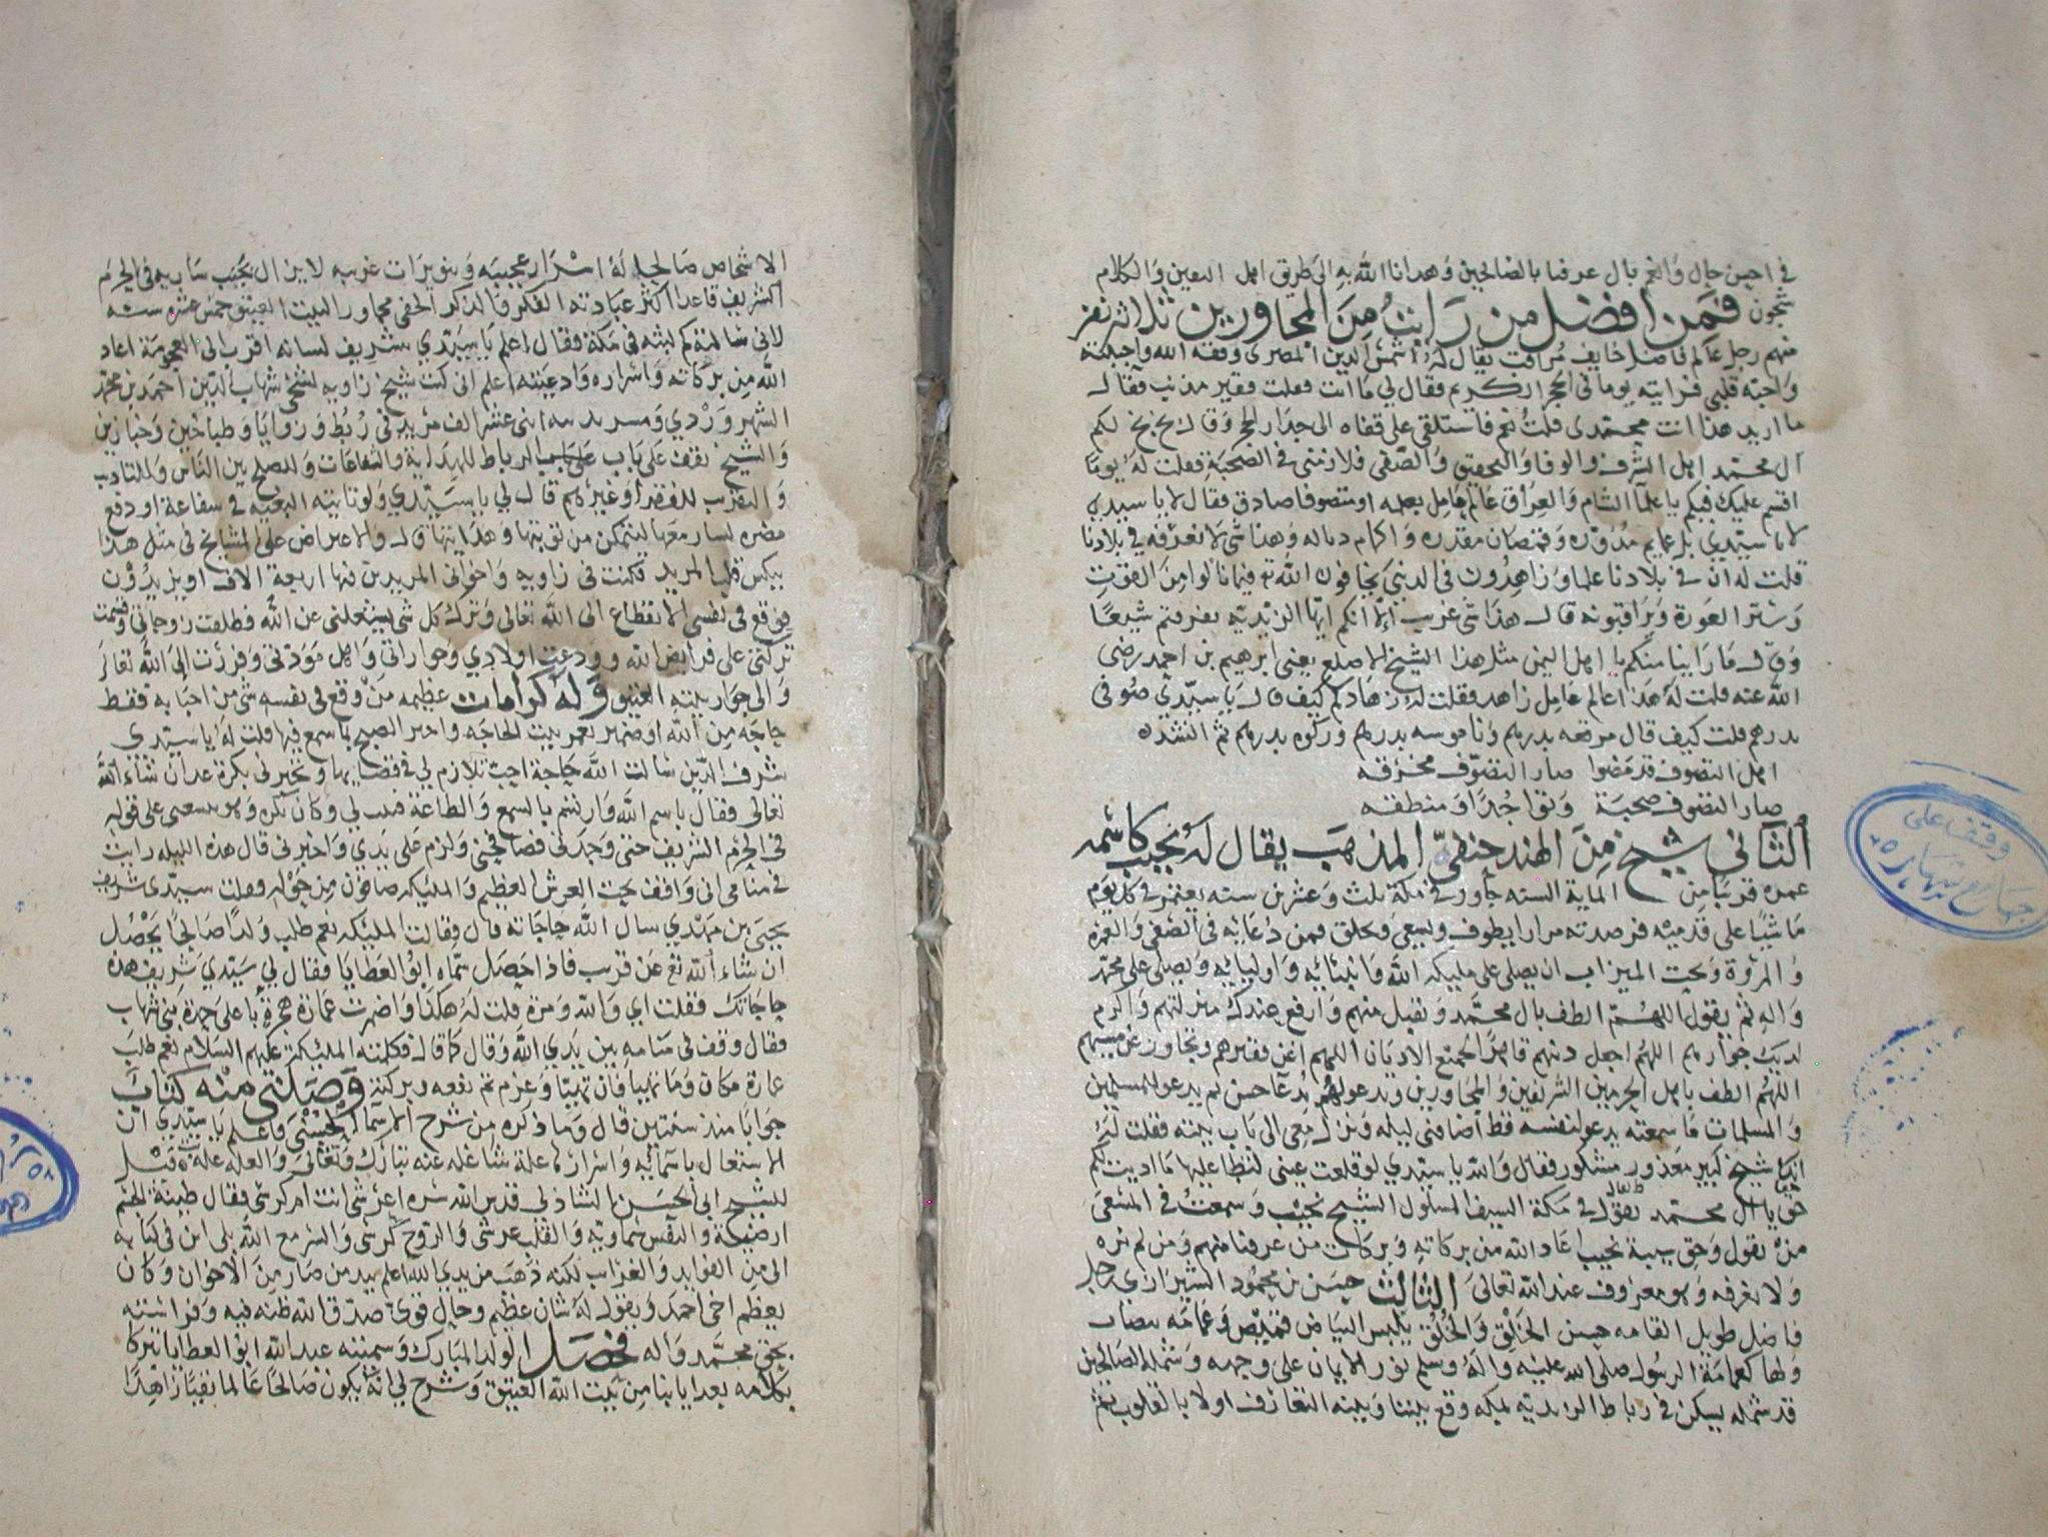 في احسن حال وانعم بال عرفنا بالصالحين وهدانا الله به الى طريق اهل اليقين والكلام
شجون فمن افضل من رايت من المجاورين ثلاثة نفر
منهم رجل عالم فاضل خايف مراقب يقال له شمس الدين المصري وفقه الله واحبه
واحبه قلبي فرايته يوما في الحجر الكريم فقال لي ما انت فقلت فقير مذنب فقال
ما اريد هذا انت محمدي قلت نعم فاستلقى على قفاه الى جدار الحجر وقال بخ بخ لكم
ال محمد اهل الشرف والوفا والتحقيق والصفى فلازمني في الصحبة فقلت له يوما
اقسم عليك فيكم يا علما الشام والعراق عالم عامل بعلمه او متصوفا صادق فقال لا يا سيدي
لا يا سيدي بل عمايم مدورة وقمصان مقدره واكمام وهذا شي لا نعرفه في بلادنا
قلت له ان في بلادنا علما وزاهدون في الدنيا يخافون الله تع فيما نالوا من القوت
وستر العورة ويراقبونه قال هذا شي غريب الا انكم ايها الزيديه نعرفكم شيعا
وقال ما راينا منكم يا اهل اليمن مثل هذا الشيخ الاصلع يعني ابرهيم بن احمد رضي
الله عنه قلت له هذا عالم عامل زاهد فقلت له زهادكم كيف قال يا سيدي صوفي
بدرهم قلت كيف قال مرقعه بدرهم وناموسه بدرهم وركوه بدرهم ثم انشده
اهل التصوف قد مضوا صار التصوف مخرقه
صار التصوف صحبة وتواجدا ومنطقه
الثاني شيخ من الهند حنفي المذهب يقال له نجيب كاسمه
عمره قريبا من الماية السنه جاور في مكة ثلث وعشرين سنه يعتمر في كل يوم
ماشيا على قدميه فرصدته مرارا يطوف ويسعى ويحلق فمن دعايه في الصفى والعمره
والمروة وتحت الميزاب ان يصلى على مليكه الله وانبيايه واوليايه ويصلى على محمد
واله ثم يقول اللهم الطف بال محمد وتقبل منهم وارفع عندك منزلتهم واكرم
لديك جوارهم اللهم اجعل دينهم قاهرا لجميع الاديان اللهم اغن فقيرهم وتجاوز عن مسيهم
اللهم الطف باهل الحرمين الشريفين والمجاورين ويدعو لهم بدعا حسن ثم يدعو للمسلمين
والمسلمات ما سمعته يدعو لنفسه قط اضافني ليله ونزل معي الى باب بيته فقلت له
انك شيخ كبير معذور مشكور فقال والله يا سيدي لو قلعت عيني لتطا عليها ما اديت لكم
حق يا ال محمد يقال في مكة السيف المسلول الشيخ نجيب وسمعت في المسعى
مره يقول وحق شيبة نجيب اعاد الله من بركاته وبركات من عرفنا منهم ومن لم نره
ولا نعرفه وهو معروف عند الله تعالى الثالث حسن بن محمود الشيرازي رجل
فاضل طويل القامه حسن الخلق والخلق يلبس البياض قميص وعمامه بيضا
ولها كعمامة الرسول صلى الله عليه واله وسلم نور الايمان على وجهه وشمله الصالحين
قد شمله يسكن في رباط الزيديه بمكه وقع بيننا وبينه التعارف اولا بالقلوب ثم
وقف على
الاشخاص صالح له اسرار عجيبه وتنويرات غريبه لا يزال تحت ساريه في الحرم
الشريف قاعدا اكثر عبادته الفكر والذكر الخفي مجاور البيت العتيق خمس عشره سنه
لاني سالته كم لبثه في مكة فقال اعلم يا سيدي شريف لسانه اقرب الى العجومة اعاد
الله من بركاته واسراره وادعيته اعلم اني كنت شيخ زاويه لشيخ شهاب الدين احمد بن محمد
السهروردي ومريديه اثنى عشر الف مريد في ربط وزوايا وطباخين وخبازين
والشيخ يقف على باب الرباط للهداية والشفاعات وللصلح بين الناس وللتاديب
والتقرب للفقرا وغيرهم قال لي يا سيدي ولو تاتيه البغيه في شفاعة او دفع
مضره لسار معها ليتمكن من توبتها وهدايتها قال والاعتراض على المشايخ في مثل هذا
ينكس قلب المريد فكنت في زاويه واخواني المريدين فيها اربعة الاف او يزيدون
فوقع في نفسي الانقطاع الى الله تعالى وترك كل شي يشغلني عن الله فطلقت زوجاتي وقسمت
تركتي على فرايض الله وودعت اولادي وجواراتي واهل مودتي وفررت الى الله تعالى
والى جوار بيته العتيق وله كرامات عظيمه من وقع في نفسه شي من احبابه فقط
حاجه من الله او ضمير يعمر بيت الحاجه واخبر الصبح بما سمع فيها قلت له يا سيدي
شرف الدين سالت الله حاجة احب تلازم لي في قضايها وتخبرني بكرة غدا ان شاء الله
تعالى فقال باسم الله وارتسم بالسمع والطاعة فلما كان بكره وهو يسعى على
في الحرم الشريف حتى وجدني فصافحني ولزم على يدي واخبرني قال هذه الليله رايت
في منامي اني واقف تحت العرش العظيم والمليكه صافون من حوله وقلت سيدي شريف
يحيى بن مهدي سال الله حاجاته قال فقالت المليكه نعم طلب ولدا صالحا يحصل
ان شاء الله تع عن قريب فاذا حصل سماه ابو العطايا فقال لي سيدي شريف هذه
حاجاتك فقلت اي والله ومرة قلت له هكذا واضمرت عمارة هجرة
فقال وقف في منامه بين يدي الله وقال كما قال فكلمته المليكة عليهم السلام نعم طلب
عمارة مكان وما تهيا فان تهيا وعزم تم نفعه وبركته وصلني منه كتاب
جوابا منذ سنتين قال وما ذكره من شرح الاسما الحسنى فاعلم يا سيدي ان
الاشتغال باسمايه واسرارها علة شاغله عنه تبارك وتعالى والعله علة قيل
للشيخ ابي الحسن الشاذلي قدس الله سره اعرشي انت ام كرسي فقال طينة الجسم
ارضية والنفس سماويه والقلب عرشي والروح كرسي والسر مع الله بلى اين في كتابه
الي من الفوايد والغرايب لكنه ذهب من يدي الله اعلم بيد من صار من الاخوان وكان
يعظم اخي احمد ويقول له شان عظيم وحال قوي صدق الله ظنه فيه وفراسته
بحق محمد واله فحصل الولد المبارك وسميته عبد الله ابو العطايا تبركا
بكلامه بعد ايابنا من بيت الله العتيق وشرح لي انه يكون صالحا عالما تقيا زاهدا